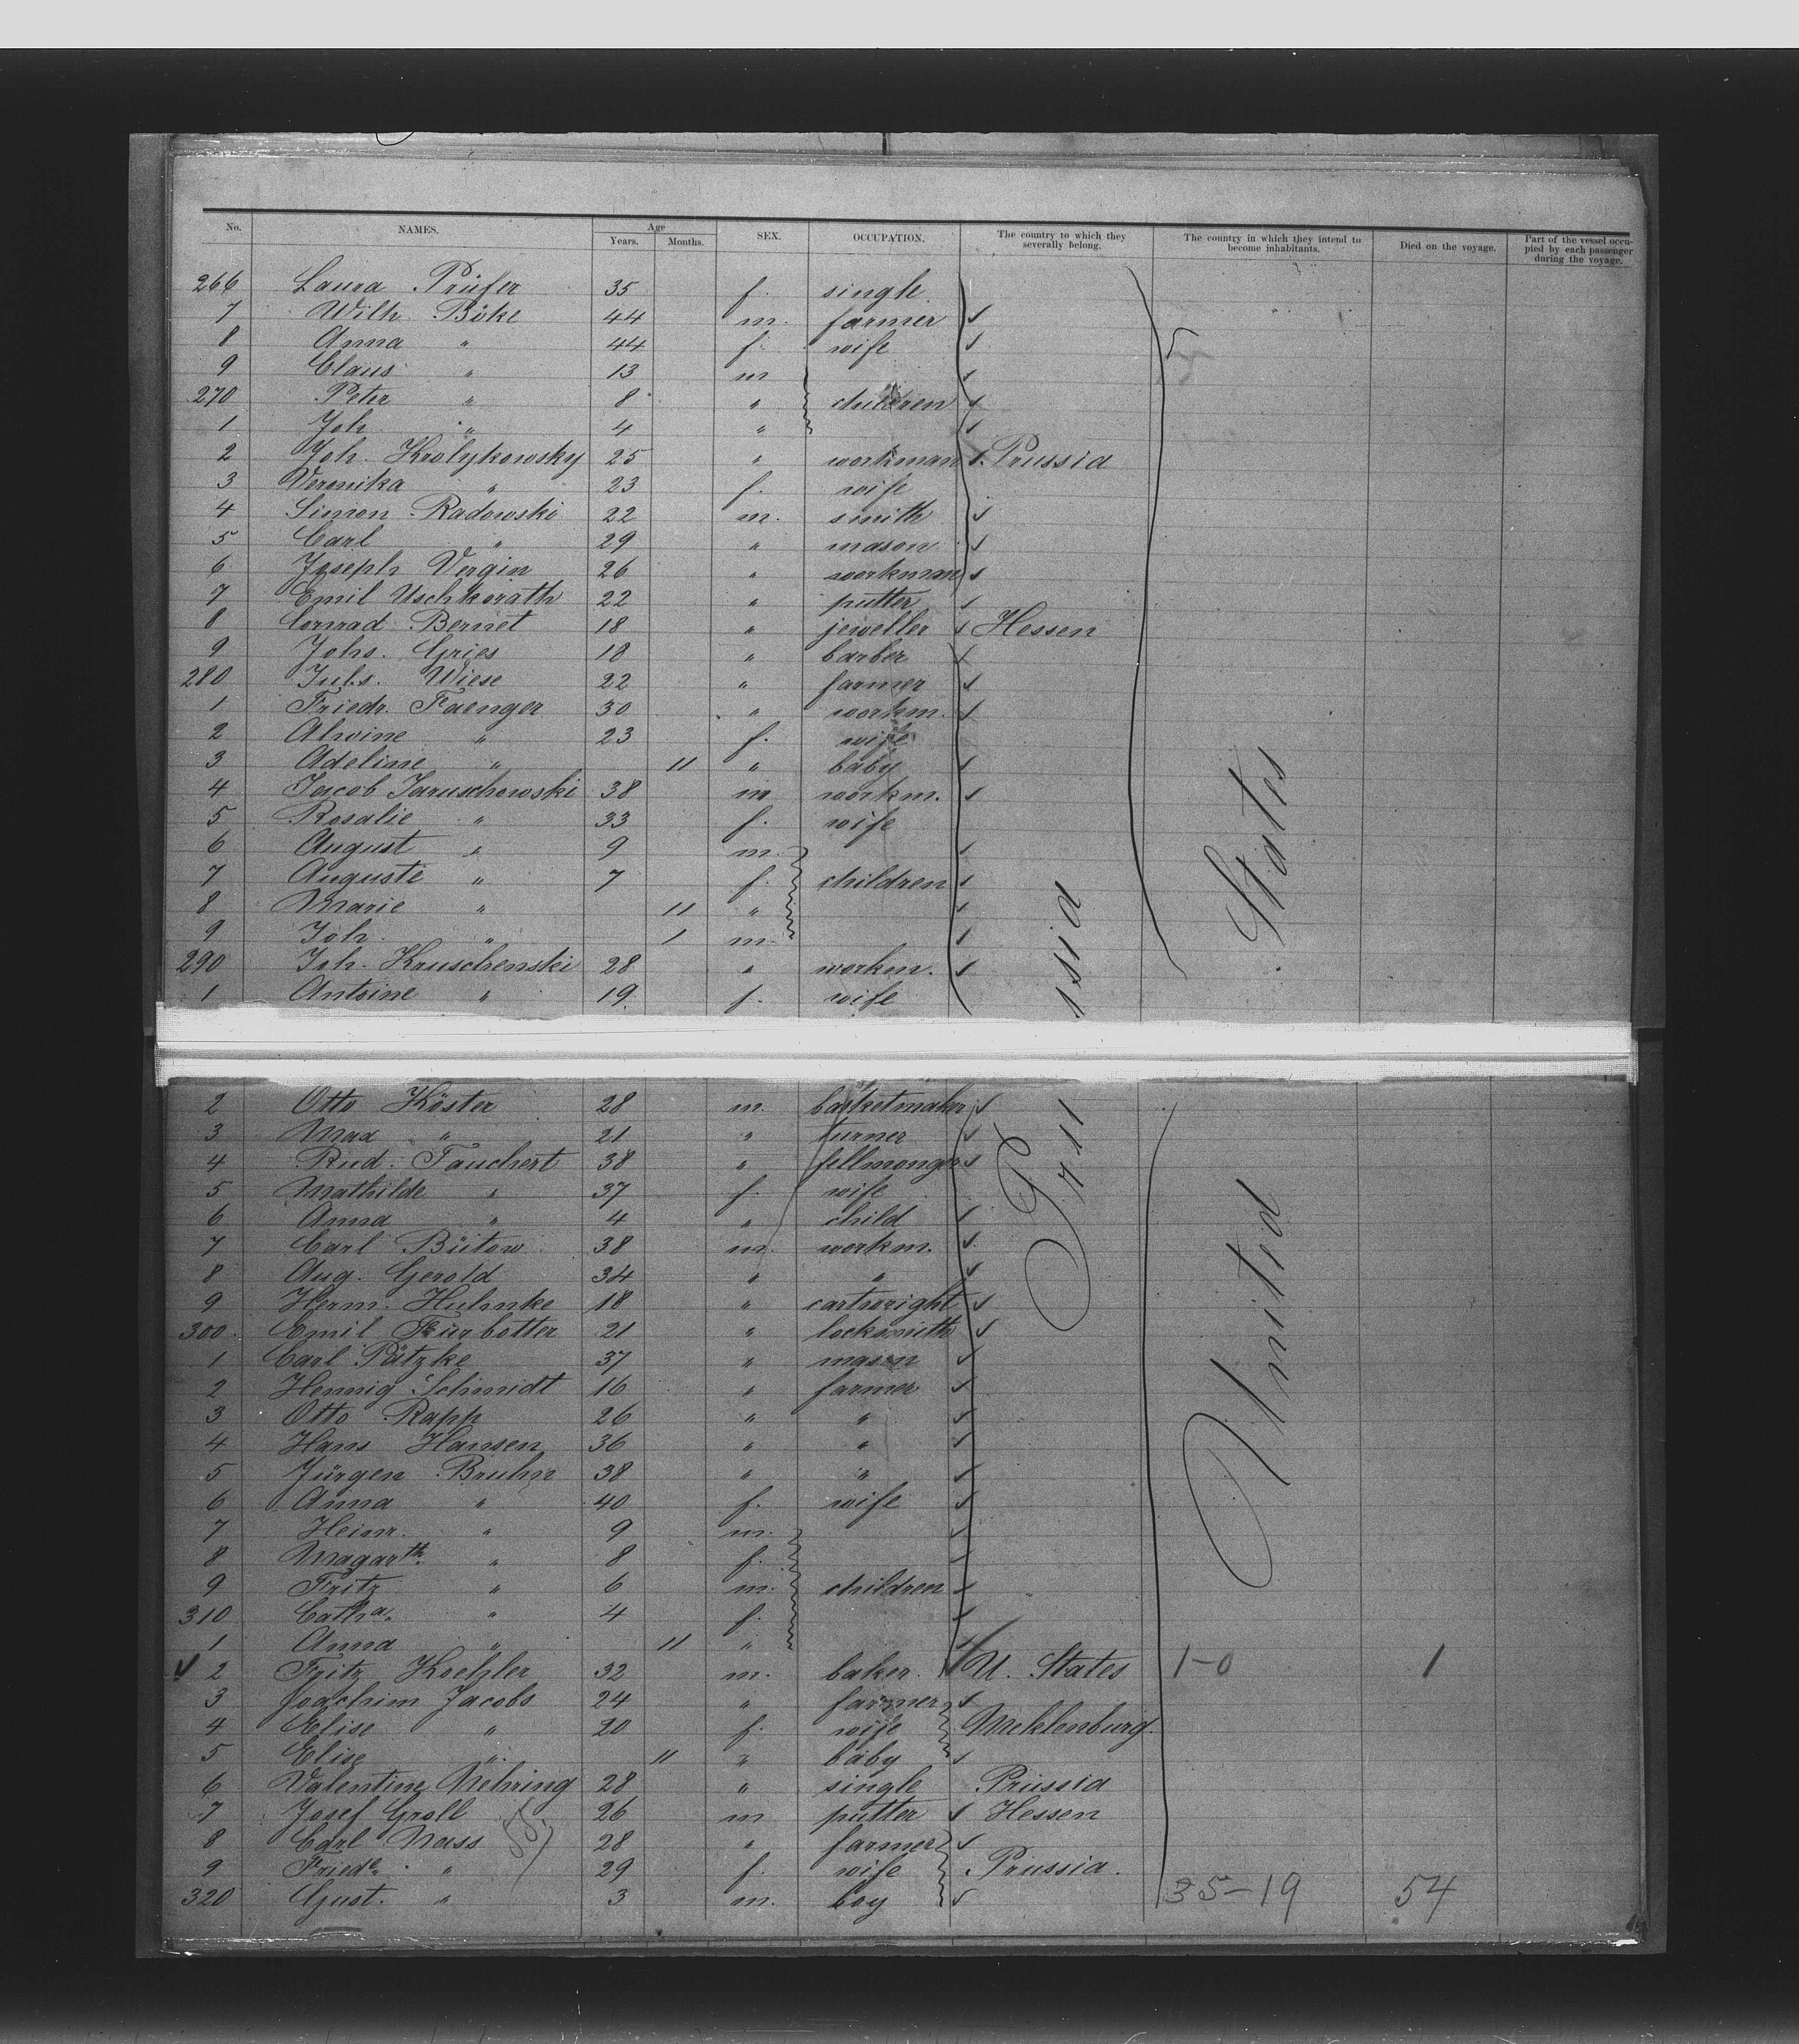 No. NAMES. Age Years. Months. SEX. OCCUPATION. The country to which they severally belong. The country in which they intend to become inhabitants. Died on the voyage. Part of the vessel occupied by each passenger during the voyage.
266 Laura Prüfer 35 f. single
7 Wilh. Böke 44 m. farmer
8 Anna " 44 f. wife
9 Claus " 13 m
270 Peter " 8 " children
1 Joh. " 4 "
2 Joh. Krolykowsky 25 " workman Prussia
3 Veronika " 23 f. wife
4 Simon Radowski 22 m. smith
5 Carl " 29 " mason
6 Joseph Vergin 26 " workman
7 Emil Uschkorath 22 " putter
8 Conrad Bernet 18 " jeweller Hessen
9 Johs. Gries 18 " barber
280 Juls. Wiese 22 " farmer
1 Friedr. Faenger 30 " workm.
2 Alwine " 23 f. wife
3 Adeline " 11 " baby
4 Jacob Jaruschowski 38 m workm.
5 Rosalie " 33 f. wife
6 August " 9 m.
7 Auguste " 7 f. children
8 Marie " 11 "
9 Joh. " 1 m.
290 Joh. Kruschenski 28 " workm.
1 Antoine " 19. f. wife
2 Otto Köster 28 m. basketmaker
3 Max " 21 " turner
4 Rud. Tauchert 38 " fellmonger
5 Mathilde " 37 f. wife
6 Anna " 4 " child
7 Carl Bütow 38 m. workm.
8 Aug. Gerold 34 " "
9 Herm. Huhnke 18 " cartwright
300 Emil Kurbotter 21 " locksmith
1 Carl Pätzke 37 " mason
2 Hennig Schmidt 16 " farmer
3 Otto Rapp 26 " "
4 Hans Hansen 36 " "
5 Jürgen Bruhn 38 " "
6 Anna " 40 f. wife
7 Heinr. " 9 m.
8 Magarth. " 8 f.
9 Fritz " 6 m. children
310 Catha. " 4 f.
1 Anna " 11 "
2 Fritz Koehler 32 m. baker. U. States 1-0 1
3 Joachim Jacobs 24 " farmer
4 Elise " 20 f. wife Meklenburg.
5 Elise " 11 " baby
6 Valentine Nehring 28 " single Prussia
7 Josef Groll 26 m putter Hessen
8 Carl Nass 28 " farmer
9 Friedе. " 29 f. wife Prussia.
320 Gust. " 3 m. boy 35-19 54
Prussia
United States